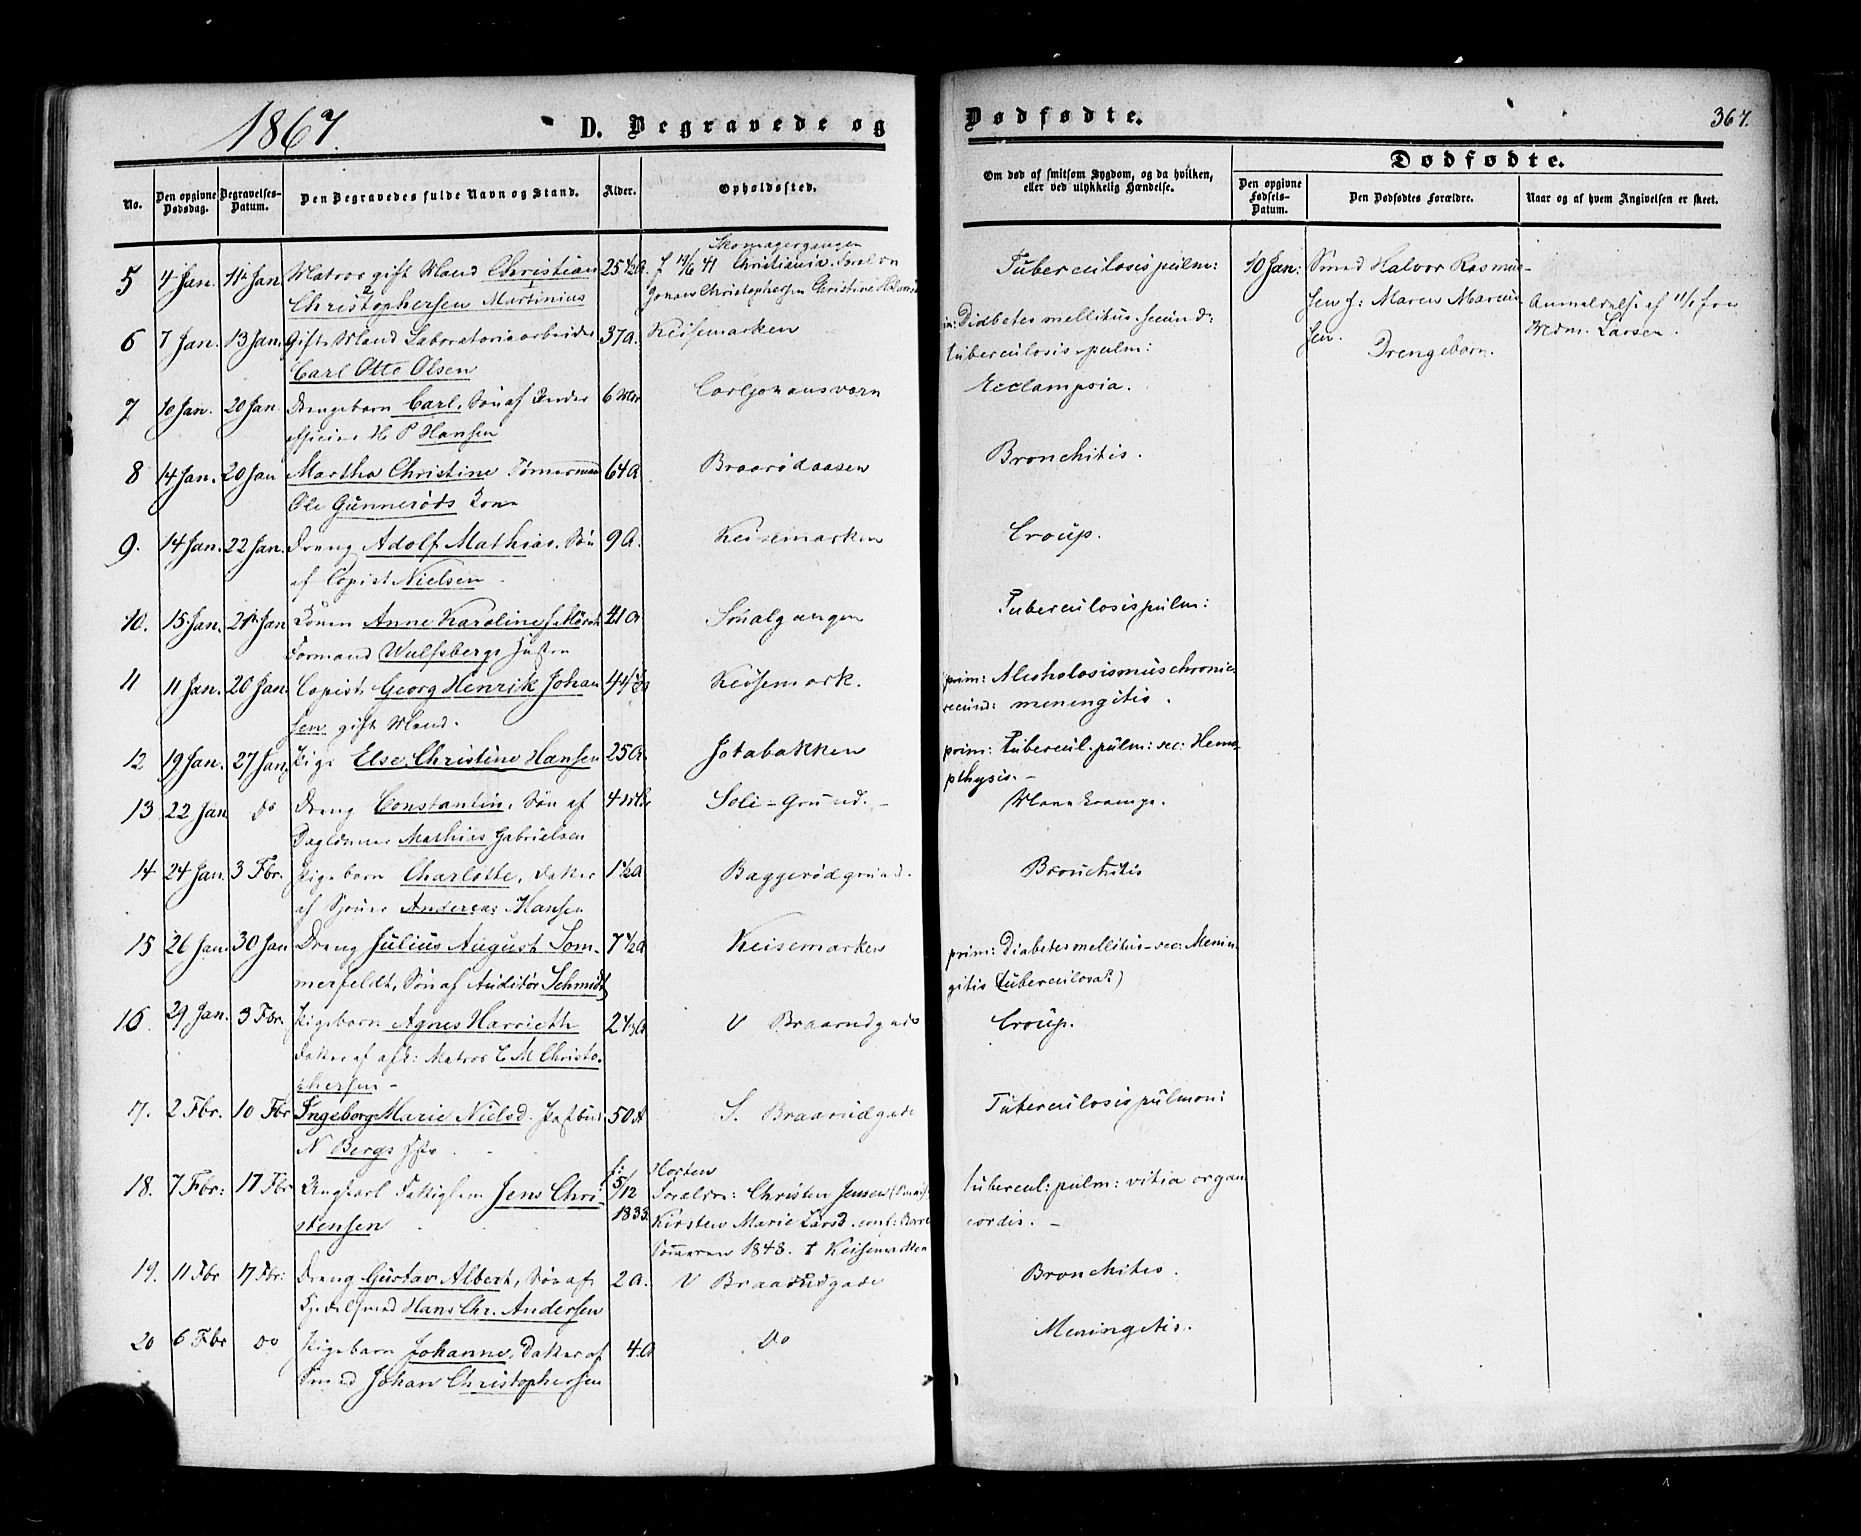 1867.
D. Begravede og
Dødfødte.
367.
No.
Den opgivne Dødsdag.
Begravelses-Datum.
Den Begravedes fulde Navn og Stand.
Alder.
Opholdssted.
Om død af smitsom Sygdom, og da hvilken,
eller ved ulykkelig Hændelse.
Dødfødte.
Den opgivne Fødsels-Datum.
Den Dødfødtes Forældre.
Naar og af hvem Angivelsen er skeet.
5 4 Jan. 11te Jan Matros gift Mand Christian 25 1/2 A. Skomagergangen
Christophersen Martinius
f 14/6 41 Christiania. Foreldre
Jonas Christophersen Christine
Tuberculosis pulm:
10 Jan: Smed Halvor Rasmus-
sen f: Maren
sen.
Drengebarn.
Anmeldelse af 11/1 fra
Mdm. Larsen.
6 7 Jan. 13 Jan. Gift Mand Laboratoriearbeider 37 a. Keisemarken
Carl Otto Olsen
Diabetes mellitus. secund:
tuberculosis pulm:
7 10 Jan. 20 Jan. Drengebarn Carl, Søn af Under 6 Mdr Carljohansværn
officier H P Hansen
Ecclampsia.
8 14 Jan. 20 Jan Martha Christine Tømmermand 64 A Braarødaasen
Ole Gunnerøds Kone
Bronchitis.
9. 14 Jan. 22 Jan. Dreng Adolf Mathias. Søn 9 A. Keisemarken
af Copist Nielsen
Croup.
10. 15 Jan. 21de Jan Konen Anne Karoline f. Mørch 41 A Smalgangen
Formand Wulfsbergs Hustru
Tuberculosis pulm:
11 11 Jan. 20 Jan. Copist Georg Henrik Johan 44 Keisemark.
sen gift Mand.
prim: Alcoholosismus chronic.
secund: meningitis.
12 19 Jan. 27 Jan. Pige Else Christine Hansen 25 A. Jotabakken
prim: tubercul. pulm: sec: Hemo-
pthysis.-
13 22 Jan do Dreng Constantin, Søn af 4 Mdr Soli-Grund.-
Daglønner Mathias Gabrielsen
14 24 Jan. 3 Fbr. Pigebarn Charlotte, Datter 1 1/2 A Baggerødgrund.
af Andreas Hansen
Bronchitis
15 26 Jan. 30 Jan Dreng Julius August Som- 7 1/2 A Keisemarken
merfeldt, Søn af Auditør Schmidt
prim: Diabetes mellitus - sec: Menin
gitis (tuberculosa?)
16. 29 Jan. 3 Fbr. Pigebarn Agnes Harrieth 2 A V Braarudgade
Datter af afd: Matros C M Christo-
phersen -
Croup.
17. 2 Fbr. 10 Fbr Ingeborg Marie Nielsd. Postbud 50 A S. Braarudgade
N Bergs
Tuberculosis pulmon:
18. 7 Fbr: 17 Fbr Ungkarl Fattiglem Jens Chri- f: 5/12 1833. Horten
stensen
Foreldre: Christen Jensen
Kirsten Marie Larsd. conf: Borre
1848. † Keisemarken
tubercul: pulm: vitia organ
cordis. -
19. 11 Fbr 17 Fbr: Dreng Gustav Albert, Søn af 2 A. V Braarudgade
Hans Chr. Andersen
Bronchites.
20 6 Fbr do Pigebarn Johanne, Datter af 4. A Do
Smed Johan Christophersen
Meningitis.